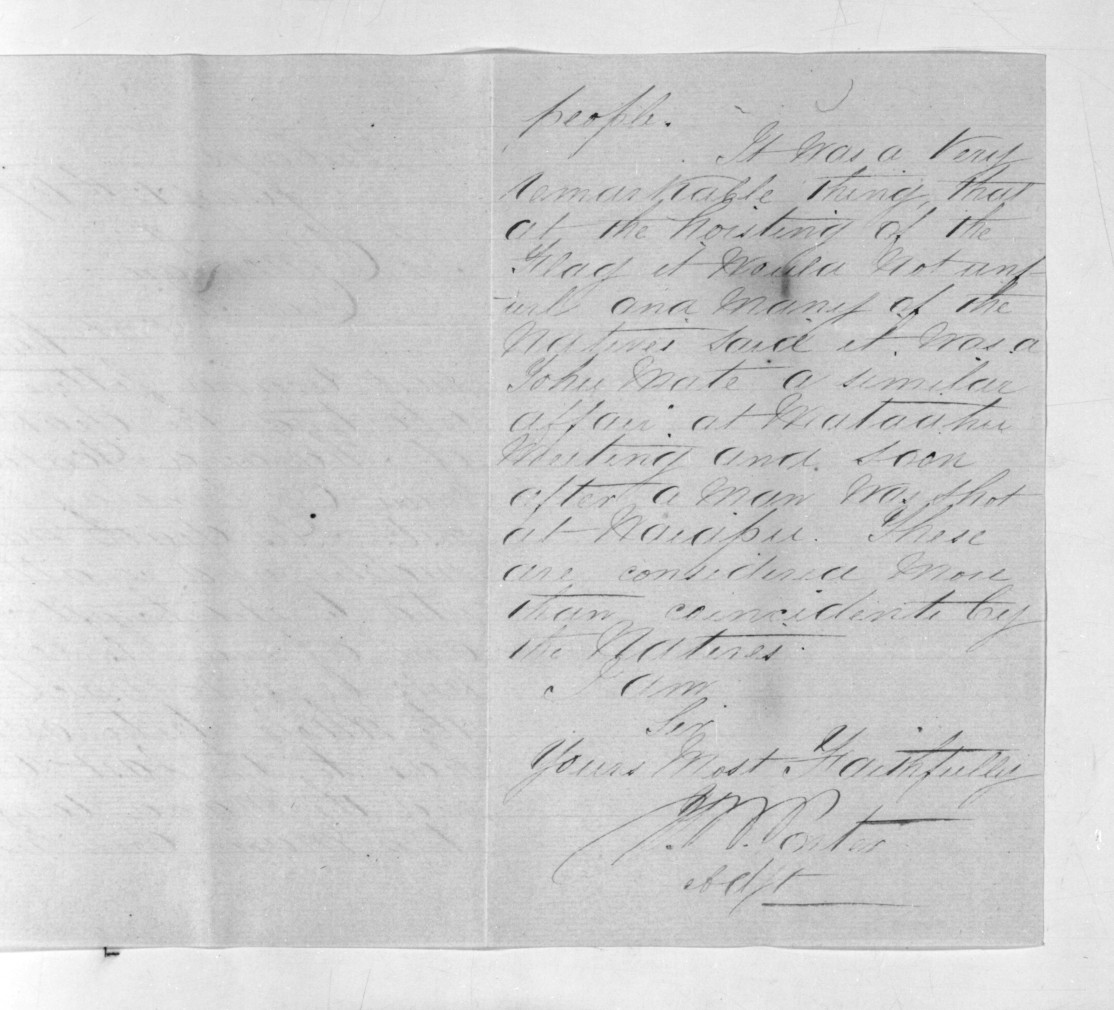 people.
It was a Very
remarkable thing, that
at the hoisting of the
Flag it would Not unf
url and Many of the
Natives said it was a
Tohu Mate a similar
affair at Mataahu
Meeting and soon
after a man was shot
at Waiapu. These
are considered More
than coincidents by
the Natives.
I am
Sir
Yours Most Faithfully
Porter
Adjt